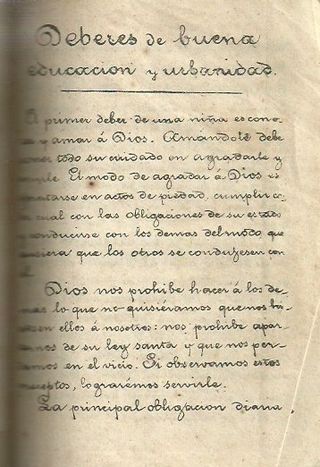 Deberes de buena
educacion y urbanidad.
El primer deber de una niña es cono-
y amar á Dios. Amandole debe
todo su cuidado en agradarle y
El modo de agradar á Dios es
en actos de piedad, cumplir
cual con las obligaciones de su estado
conducirse con los demas del modo que
que los otros se condujesen con
Dios nos prohibe hacer á los de-
lo que no quisiéramos que nos hi-
ellos á nosotros: nos prohibe apar-
de su ley santa y que nos per-
en el vicio. Si observamos estos
lograrémos servirle.
La principal obligacion diaria,